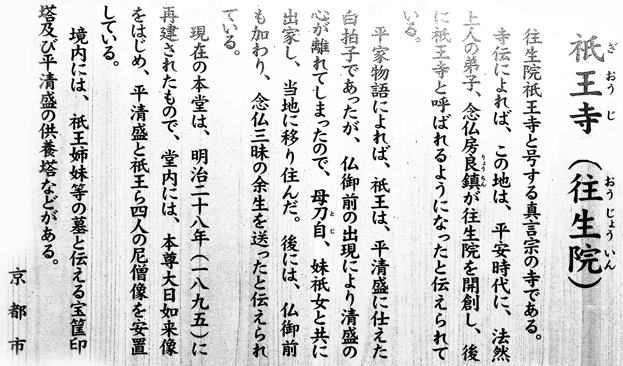 祇王寺(往生院)
ぎおうじ おうじょういん
往生院祇王寺と号する真言宗の寺である。
寺伝によれば、この地は、平安時代に、法然
上人の弟子、念仏房良鎮が往生院を開創し、後
りょうちん
に祇王寺と呼ばれるようになったと伝えられて
いる。
平家物語によれば、祇王は、平清盛に仕えた
白拍子であったが、仏御前の出現により清盛の
心が離れてしまったので、母刀自、妹祇女と共に
とじ
出家し、当地に移り住んだ。後には、仏御前
も加わり、念仏三昧の余生を送ったと伝えられ
ている。
現在の本堂は、明治二十八年(一八九五)に
再建されたもので、堂内には、本尊大日如来像
をはじめ、平清盛と祇王ら四人の尼僧像を安置
している。
境内には、祇王姉妹等の墓と伝える宝筐印
塔及び平清盛の供養塔などがある。
京都市